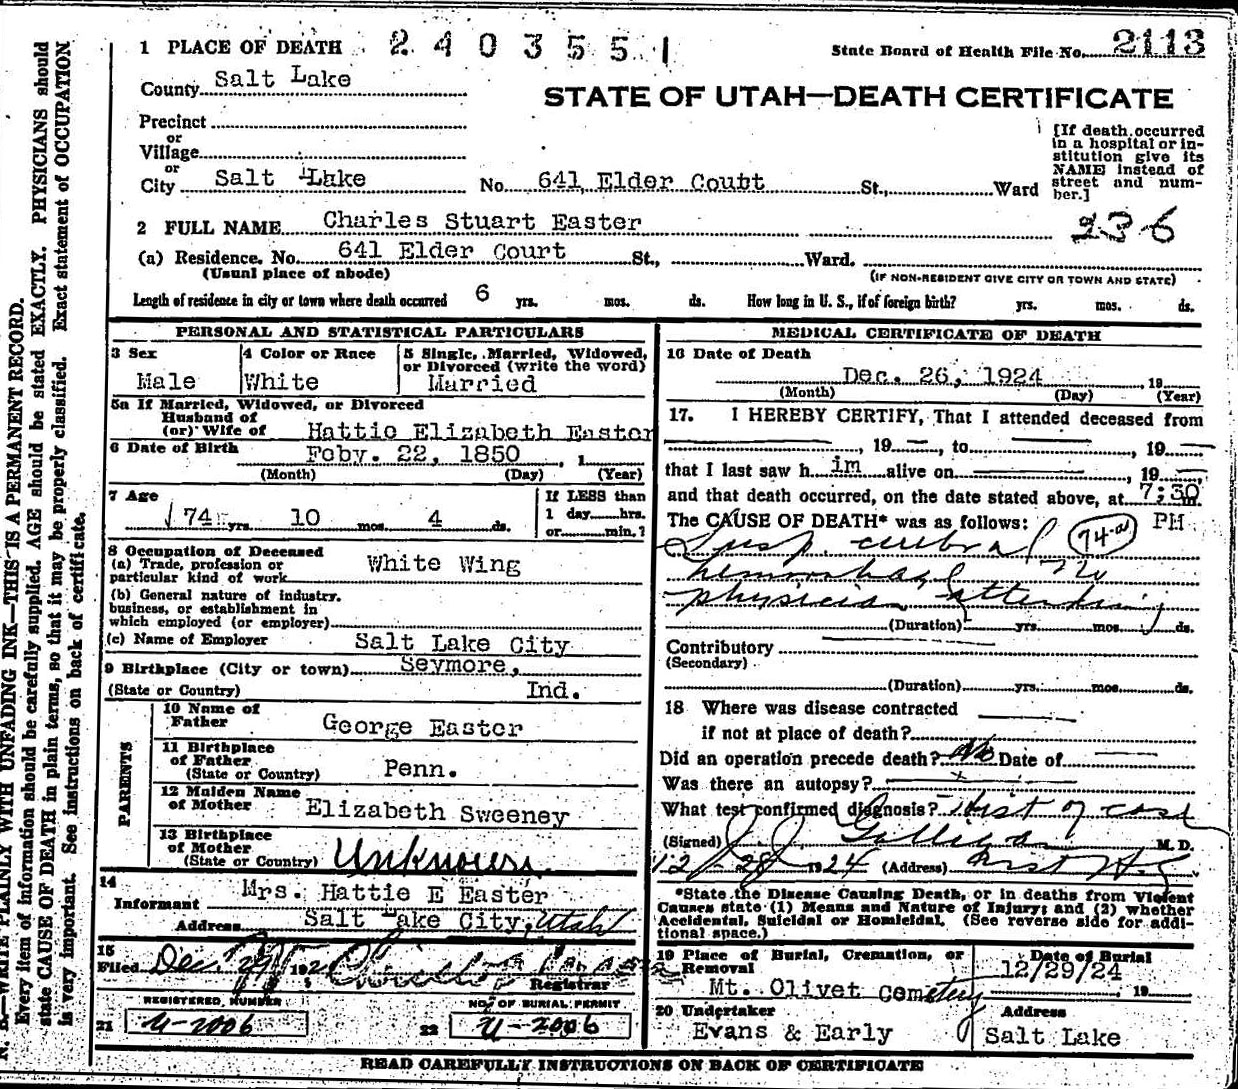 1 PLACE OF DEATH 2 4 0 3 5 5 1 State Board of Health File No. 2113
County Salt Lake
STATE OF UTAH—DEATH CERTIFICATE
Precinct
or
Village
or
City Salt Lake No. 641 Elder Court St., Ward
[If death occurred
in a hospital or in-
stitution give its
NAME instead of
street and num-
ber.]
236
2 FULL NAME Charles Stuart Easter
(a) Residence. No. 641 Elder Court St., Ward.
(Usual place of abode) (IF NON-RESIDENT GIVE CITY OR TOWN AND STATE)
Length of residence in city or town where death occurred 6 yrs. mos. ds. How long in U. S., if of foreign birth? yrs. mos. ds.
PERSONAL AND STATISTICAL PARTICULARS
3 Sex
Male
4 Color or Race
White
5 Single, Married, Widowed,
or Divorced (write the word)
Married
5a If Married, Widowed, or Divorced
Husband of
(or) Wife of Hattie Elizabeth Easter
6 Date of Birth Feby. 22, 1850 , 1
(Month) (Day) (Year)
7 Age
74 yrs. 10 mos. 4 ds.
If LESS than
1 day hrs.
or min.?
8 Occupation of Deceased
(a) Trade, profession or
particular kind of work White Wing
(b) General nature of industry,
business, or establishment in
which employed (or employer)
(c) Name of Employer Salt Lake City
9 Birthplace (City or town) Seymore,
(State or Country) Ind.
PARENTS
10 Name of
Father George Easter
11 Birthplace
of Father
(State or Country) Penn.
12 Maiden Name
of Mother Elizabeth Sweeney
13 Birthplace
of Mother
(State or Country) Unknown
14
Informant Mrs. Hattie E Easter
Address Salt Lake City, Utah
15
Filed Dec. 29 192
Registrar
REGISTERED NUMBER
21 U-2006
NO. OF BURIAL PERMIT
22 U-2006
MEDICAL CERTIFICATE OF DEATH
16 Date of Death
Dec. 26, 1924 , 19
(Month) (Day) (Year)
17. I HEREBY CERTIFY, That I attended deceased from
, 19 , to , 19
that I last saw h im alive on , 19 ,
and that death occurred, on the date stated above, at 7:30 m.
The CAUSE OF DEATH* was as follows: PM
Susp. cerebral 74-a
hemorrhage No
physician attending
(Duration) yrs. mos. ds.
Contributory
(Secondary)
(Duration) yrs. mos. ds.
18 Where was disease contracted
if not at place of death?
Did an operation precede death? No Date of
Was there an autopsy?
What test confirmed diagnosis? Hist of case
(Signed) M. D.
12/28 1924 (Address)
*State the Disease Causing Death, or in deaths from Violent
Causes state (1) Means and Nature of Injury; and (2) whether
Accidental, Suicidal or Homicidal. (See reverse side for addi-
tional space.)
19 Place of Burial, Cremation, or
Removal
Mt. Olivet Cemetery
Date of Burial
12/29/24
, 19
20 Undertaker
Evans & Early
Address
Salt Lake
READ CAREFULLY INSTRUCTIONS ON BACK OF CERTIFICATE
N. B.—WRITE PLAINLY WITH UNFADING INK—THIS IS A PERMANENT RECORD.
Every item of information should be carefully supplied. AGE should be stated EXACTLY. PHYSICIANS should
state CAUSE OF DEATH in plain terms, so that it may be properly classified. Exact statement of OCCUPATION
is very important. See instructions on back of certificate.